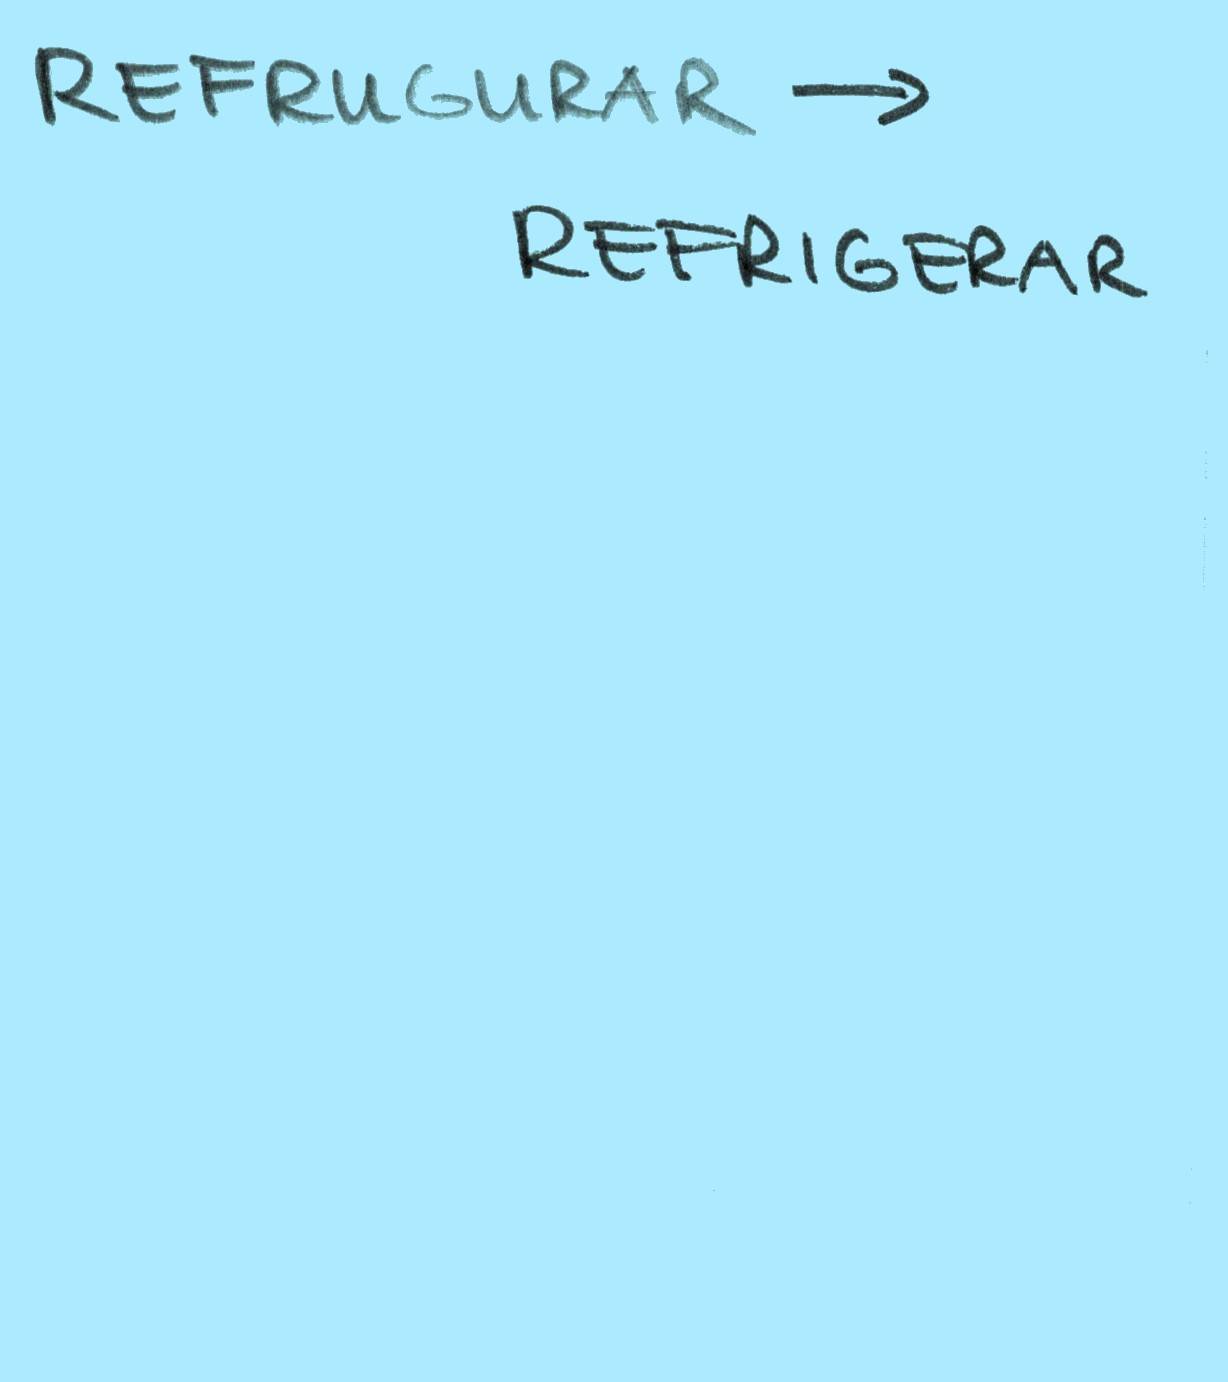 REFRUGURAR →
REFRIGERAR